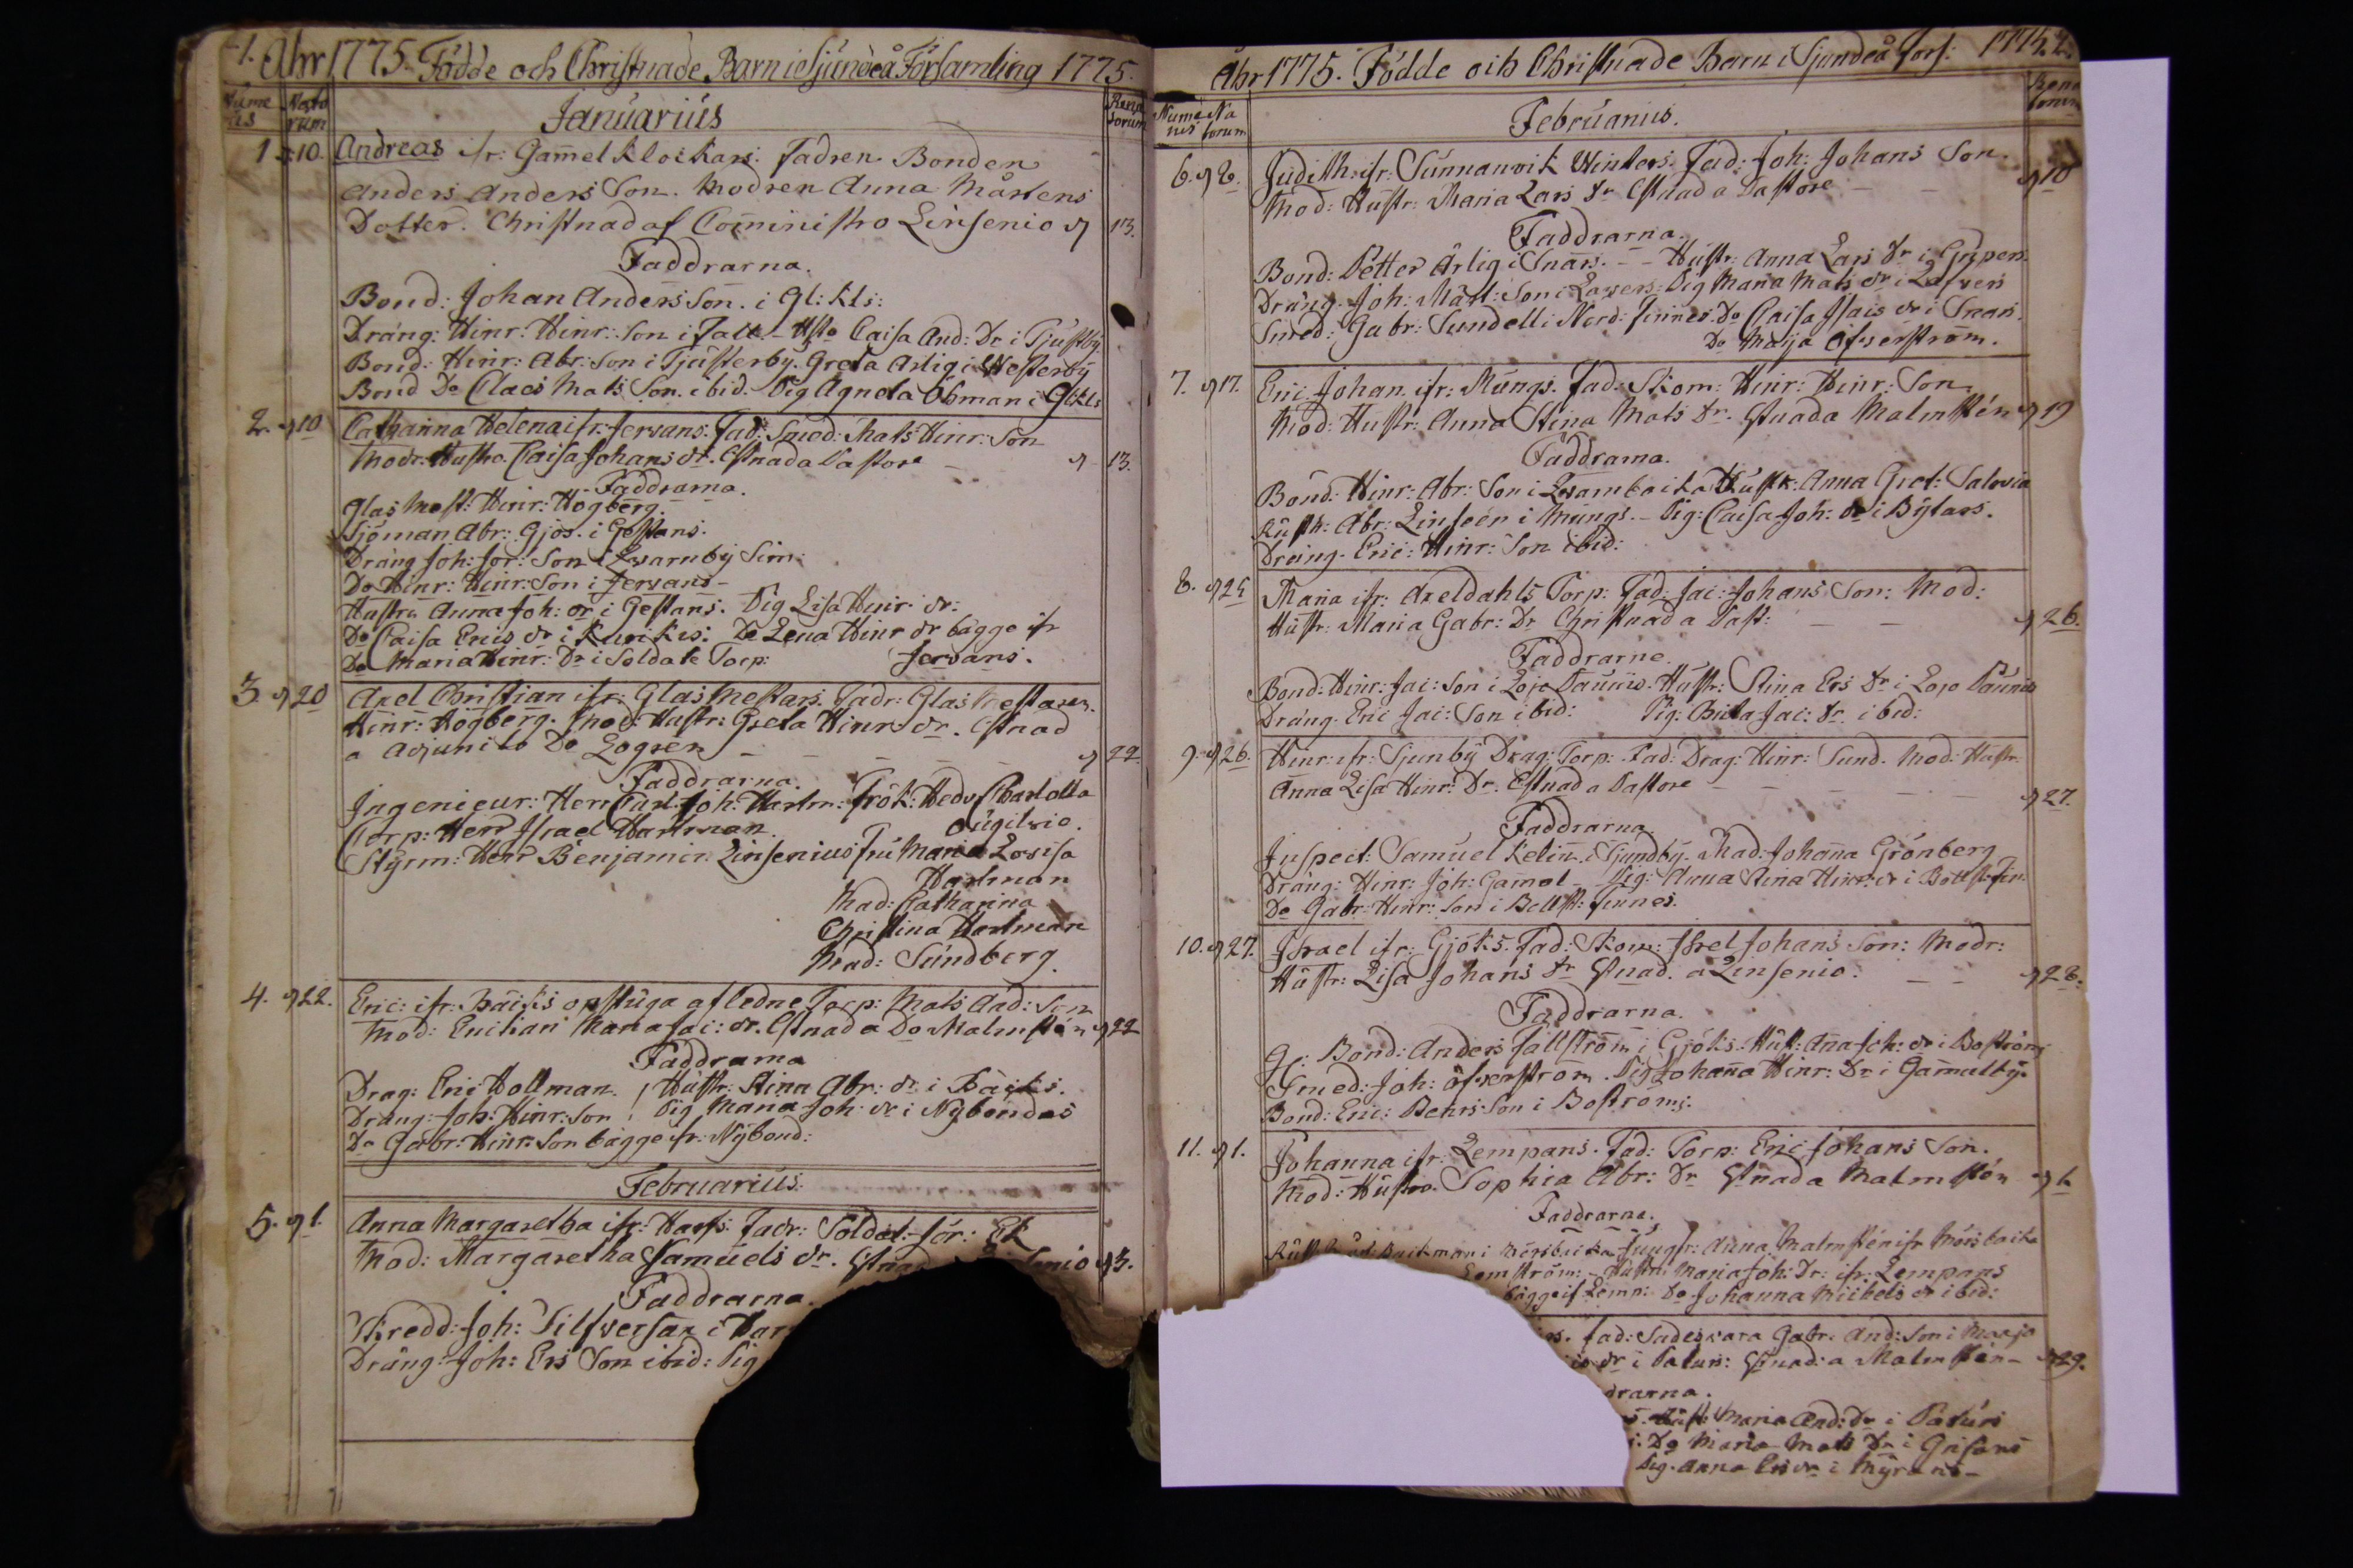 1. Åhr 1775. Födde och Christnade Barn i Sjundeå Församling 1775.
Nume rus Nato rum Januarius Rena torum
1 10. Andreas ifr: Gam̄elklockars: Fadren Bonden
Anders Anders Son. Modren Anna Mårtens
Dotter. Christnad af Com̄inistro Linsenio d 13.
Faddrarna.
Bond: Johan Anders Son. i Gl: Kls:
Dräng: Hinr: Hinr: Son i Fall. Hst Caisa And: Dr i Tjustby.
Bond: Hinr: Abr: Son i Tjusterby. Greta Arlig i Westerby
Bond Do Claes Mats Son. ibid. Pig Agneta Öhman i Gl:Kls
2. d 10 Catharina Helena ifr: Jervans. Fad: Smed: Mats Hinr: Son
Modr: Hustro. Caisa Johans dr. Cstnad a Pastore d 13.
Faddrarna.
Glas Mest: Hinr: Högberg.
Sjöman Abr: Gjös. i Gestans.
Dräng Joh: Jor: Son i Qwarnby Sim:
Do Hinr: Hinr: Son i Jervans
Hustru Anna Joh: dr i Gestans. Pig Lisa Hinr dr:
Do Caisa Erics dr i Kurikis: Do Lena Hinr dr bägge ifr
Do Maria Hinr: Dr i Soldate Torp: Jervans.
3. d 20 Axel Christian ifr: Glas Mestars. Fadr: Glas Mestaren.
Hinr: Högberg. Mod: Hustr: Greta Hinrs dr. Cstnad
a Adjuncto Do Logren d 22
Faddrarna.
Ingenieur: Herr Carl Joh: Hartm: Frök: Hedv Charlotta
Corp: Herr Israel Hartman. Ougilvie.
Styrm: Herr Benjamin Linsenius Fru Maria Lovisa
Hartman
Mad: Catharina
Christina Hartman
Mad: Sundberg.
4. d 22. Eric: ifr: Bäcks opstuga afledne Torp: Mats And: Son
Mod: Enikan Maria Jac: dr. Cstnad a Do Malmstén d 22
Faddrarna
Drag: Eric Hollman. Hustr: Stina Abr: dr i Bäcks.
Dräng: Joh: Hinr: Son Pig Maria Joh: dr i Nybondas
Do Gabr: Hinr: Son bägge ifr: Nybond:
Februarius:
5. d 1. Anna Margaretha ifr: Harfs: Fadr: Soldat: Jör: Ek
Mod: Margaretha Samuels dr. Cstnad d 3.
Faddrarna.
Skredd: Joh: Silfversan i Har
Dräng: Joh: Ers Son ibid: Pig
Åhr 1775. Födde och Christnade Barn i Sjundeå Fors: 1775. 2.
Nume rus Na torum Februarius. Rena torum
6. d 8. Judith: ifr: Sunnanvik Winters. Fad: Joh: Johans Son.
Mod: Hustr: Maria Lars Dr Cstnad a Pastore d 10
Faddrarna.
Bond: Petter Ärlig i Snars. Hustr: Anna Lars Dr i Gripen.
Dräng: Joh: Märt: Son i Lavers: Pig Maria Mats dr i Lafvers
Smed: Gabr: Sundell i Nord: Finnes: Do Caisa Isacs dr i Snars.
Do Maja Öfverström.
7. d 17. Eric Johan. ifr: Mungs. Fad: Skom: Hinr: Hinr: Son
Mod: Hustr: Anna Stina Mats Dr. Cstnad a Malmstén d 19
Faddrarna.
Bond: Hinr: Abr: Son i Qwarnbacka Hustr: Anna Gret: Salovia
Rustn: Abr: Linseén i Mungs. Pig: Caisa Joh: dr i Bylars.
Dräng: Eric: Hinr: Son ibid:
8. d 25 Maria ifr: Axeldahls Torp: Fad: Jac: Johans Son: Mod:
Hustr: Maria Gabr: Dr Christnad a Past: d 26.
Faddrarne.
Bond: Hinr: Jac: Son i Lojo Paunis. Hustr: Stina Ers Dr i Lojo Paunis
Dräng. Eric Jac: Son ibid: Pig: Brita Jac: Dr ibid:
9. d 26. Hinr: ifr: Sjunby Drag: Torp: Fad: Drag: Hinr: Sund. Mod: Hustr:
Anna Lisa Hinr: Dr. Cstnad a Pastore d 27.
Faddrarna.
Inspect: Samuel Kelin̄. i Sjundby. Mad: Johan̄a Grönberg
Dräng: Hinr: Joh: Gam̄al Pig: Anna Stina Hinr: dr i Bollst: Fin:
Do Gabr: Hinr: Son i Bollst: Finnes.
10. d 27. Israel ifr: Gjöks. Fad: Skom: Isrel Johans Son: Modr:
Hustr: Lisa Johans Dr Cstnad. a Linsenio. d 28.
Faddrarna.
Gl: Bond: Anders Fallström i Gjöks. Hust: Anna Joh: dr i Boströms
Smed: Joh: Öfverström. Pig Johan̄a Hinr: Dr i Gam̄elby.
Bond: Eric: Bengs Son i Boströms.
11. d 1. Johanna ifr: Lempans. Fad: Torp: Eric Johans Son.
Mod: Hustro. Sophia Abr: Dr Cstnad a Malmstén d 6
Faddrarne.
Jungfr: Anna Malmstén ifr Mörsbacka
Lemström: Hustr: Maria Joh: Dr: ifr: Lempans
bägge if Lemp: Do Johanna Michels dr ibid:
Fad: Sadesvara Gabr: And: Son i Marjo
dr i Paturs: Cstnad: a Malmstén d 29.
drarna.
Hust: Maria And: Dr i Paturs
Do Maria Mats Dr i Grisans
Pig. Anna Ers dr i Myrans